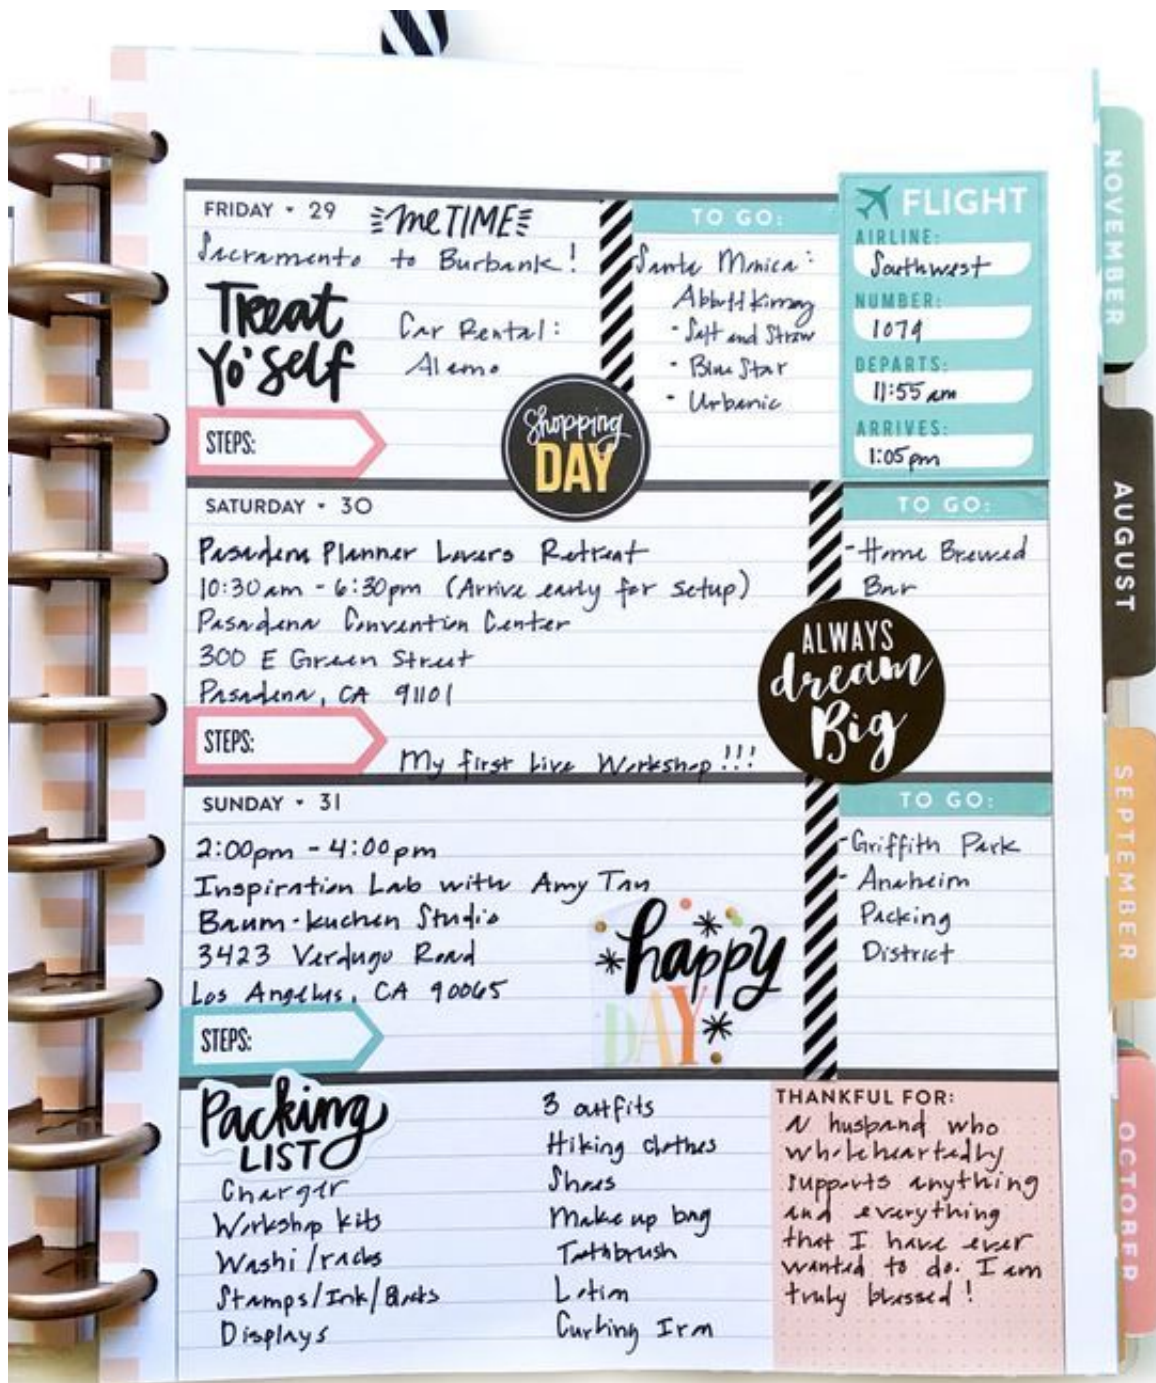 FRIDAY • 29
me TIME
Sacramento to Burbank!
Treat
Yo' Self
Car Rental:
Alamo
STEPS:
Shopping
DAY
TO GO:
Santa Monica:
Abbott Kinney
- Salt and Straw
- Blue Star
- Urbanic
FLIGHT
AIRLINE:
Southwest
NUMBER:
1079
DEPARTS:
11:55 am
ARRIVES:
1:05pm
SATURDAY • 30
Pasadena Planner Lovers Retreat
10:30am - 6:30pm (Arrive early for setup)
Pasadena Convention Center
300 E Green Street
Pasadena, CA 91101
STEPS:
My first Live Workshop!!!
TO GO:
- Home Brewed
Bar
ALWAYS
dream
Big
SUNDAY • 31
2:00pm - 4:00pm
Inspiration Lab with Amy Tan
Baum-kuchen Studio
3423 Verdugo Road
Los Angeles, CA 90065
STEPS:
happy
DAY
TO GO:
- Griffith Park
- Anaheim
Packing
District
Packing
LIST
Charger
Workshop kits
Washi/racks
Stamps/Ink/
Displays
3 outfits
Hiking clothes
Shoes
Make up bag
Toothbrush
Lotion
Curling Iron
THANKFUL FOR:
A husband who
wholeheartedly
supports anything
and everything
that I have ever
wanted to do. I am
truly blessed!
NOVEMBER
AUGUST
SEPTEMBER
OCTOBER